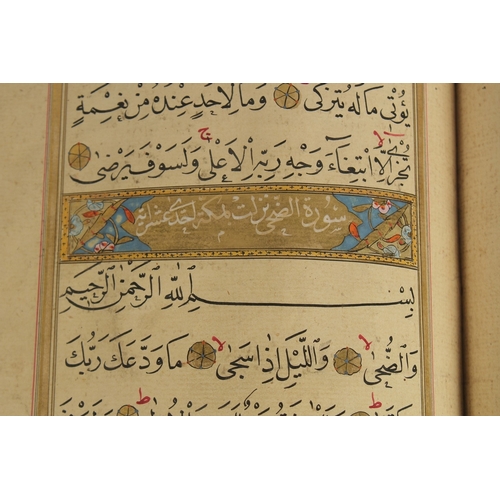 يُؤْتِي مَالَهُ يَتَزَكَّى وَمَا لِأَحَدٍ عِنْدَهُ مِنْ نِعْمَةٍ
تُجْزَى إِلَّا ابْتِغَاءَ وَجْهِ رَبِّهِ الْأَعْلَى وَلَسَوْفَ يَرْضَى
سورة الضحى نزلت بمكة احدى عشر اية
بِسْمِ اللَّهِ الرَّحْمَٰنِ الرَّحِيمِ
وَالضُّحَى وَاللَّيْلِ إِذَا سَجَى مَا وَدَّعَكَ رَبُّكَ